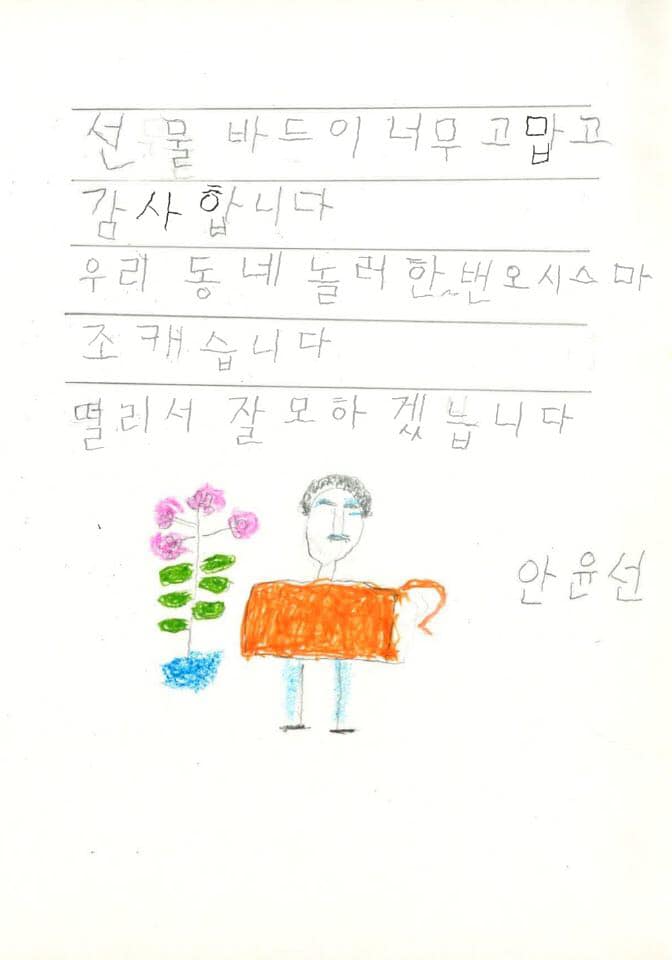 선물 바드이 너무 고맙고
감사합니다
우리 동네 놀러 한번 오시스마
조캐습니다
떨리서 잘 모하겠습니다
안윤선